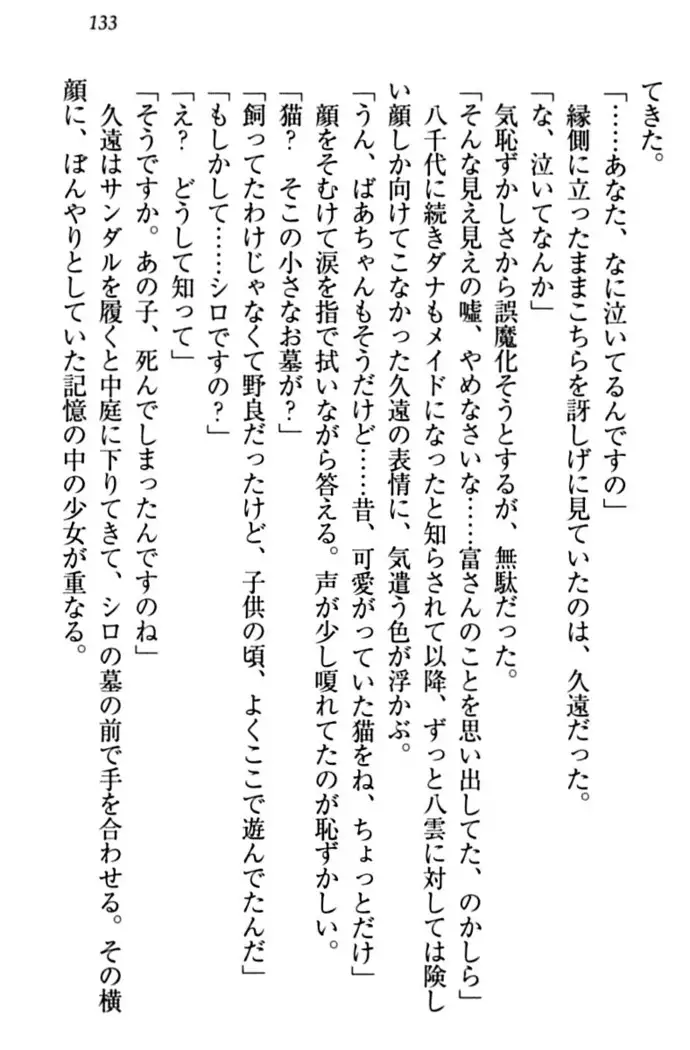 133
てきた。
「……あなた、なに泣いてるんですの」
縁側に立ったままこちらを訝しげに見ていたのは、久遠だった。
「な、泣いてなんか」
気恥ずかしさから誤魔化そうとするが、無駄だった。
「そんな見え見えの嘘、やめなさいな……富さんのことを思い出してた、のかしら」
八千代に続きダナもメイドになったと知らされて以降、ずっと八雲に対しては険し
い顔しか向けてこなかった久遠の表情に、気遣う色が浮かぶ。
「うん、ばあちゃんもそうだけど……昔、可愛がっていた猫をね、ちょっとだけ」
顔をそむけて涙を指で拭いながら答える。声が少し嗄れてたのが恥ずかしい。
「猫？　そこの小さなお墓が？」
「飼ってたわけじゃなくて野良だったけど、子供の頃、よくここで遊んでたんだ」
「もしかして……シロですの？」
「え？　どうして知って」
「そうですか。あの子、死んでしまったんですのね」
久遠はサンダルを履くと中庭に下りてきて、シロの墓の前で手を合わせる。その横
顔に、ぼんやりとしていた記憶の中の少女が重なる。